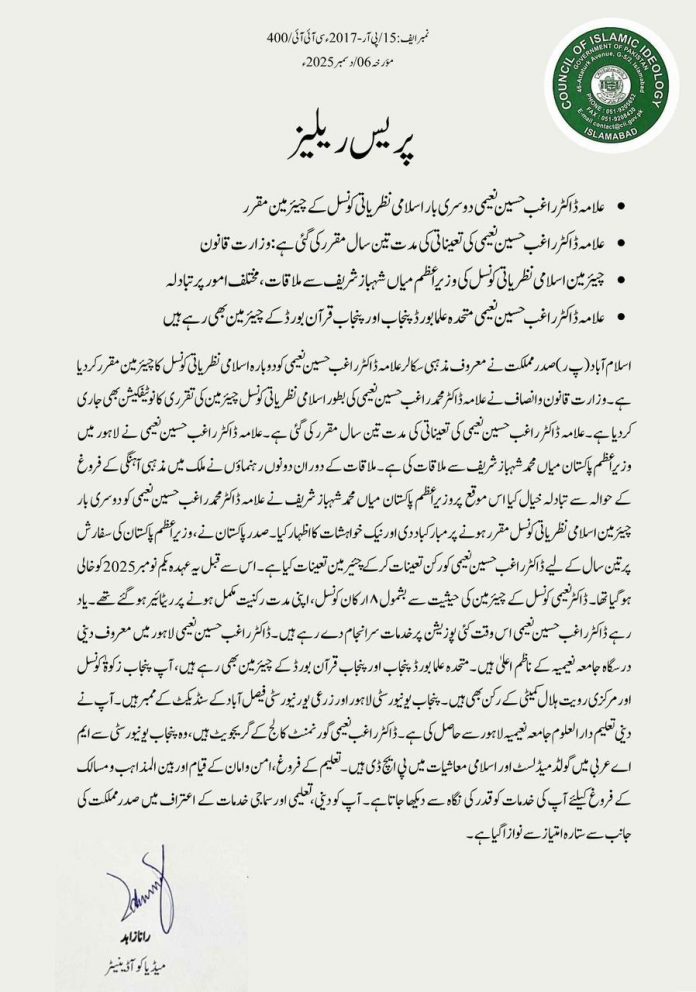 نمبر ایف: 15/پی آر-2017ء سی آئی آئی/400
مؤرخہ 06/دسمبر 2025ء
COUNCIL OF ISLAMIC IDEOLOGY
GOVERNMENT OF PAKISTAN
46-Attaturk Avenue, G-5/2, Islamabad
PHONE: 051-9205652
FAX: 051-9208430
E-mail contact@cii.gov.pk
ISLAMABAD
پریس ریلیز
• علامہ ڈاکٹر راغب حسین نعیمی دوسری بار اسلامی نظریاتی کونسل کے چیئرمین مقرر
• علامہ ڈاکٹر راغب حسین نعیمی کی تعیناتی کی مدت تین سال مقرر کی گئی ہے: وزارت قانون
• چیئرمین اسلامی نظریاتی کونسل کی وزیراعظم میاں شہباز شریف سے ملاقات، مختلف امور پر تبادلہ
• علامہ ڈاکٹر راغب حسین نعیمی متحدہ علما بورڈ پنجاب اور پنجاب قرآن بورڈ کے چیئرمین بھی رہے ہیں
اسلام آباد (پ ر) صدر مملکت نے معروف مذہبی سکالر علامہ ڈاکٹر راغب حسین نعیمی کو دوبارہ اسلامی نظریاتی کونسل کا چیئرمین مقرر کر دیا
ہے۔ وزارت قانون و انصاف نے علامہ ڈاکٹر محمد راغب حسین نعیمی کی بطور اسلامی نظریاتی کونسل چیئرمین کی تقرری کا نوٹیفکیشن بھی جاری
کر دیا ہے۔ علامہ ڈاکٹر راغب حسین نعیمی کی تعیناتی کی مدت تین سال مقرر کی گئی ہے۔ علامہ ڈاکٹر راغب حسین نعیمی نے لاہور میں
وزیراعظم پاکستان میاں محمد شہباز شریف سے ملاقات کی ہے۔ ملاقات کے دوران دونوں رہنماؤں نے ملک میں مذہبی آہنگی کے فروغ
کے حوالہ سے تبادلہ خیال کیا اس موقع پر وزیراعظم پاکستان میاں محمد شہباز شریف نے علامہ ڈاکٹر محمد راغب حسین نعیمی کو دوسری بار
چیئرمین اسلامی نظریاتی کونسل مقرر ہونے پر مبارکباد دی اور نیک خواہشات کا اظہار کیا۔ صدر پاکستان نے، وزیراعظم پاکستان کی سفارش
پر تین سال کے لیے ڈاکٹر راغب حسین نعیمی کو رکن تعینات کر کے چئیرمین تعینات کیا ہے۔ اس سے قبل یہ عہدہ یکم نومبر 2025 کو خالی
ہو گیا تھا۔ ڈاکٹر نعیمی کونسل کے چیئرمین کی حیثیت سے بشمول ۸ ارکان کونسل، اپنی مدت رکنیت مکمل ہونے پر ریٹائیر ہو گئے تھے۔ یاد
رہے ڈاکٹر راغب حسین نعیمی اس وقت کئی پوزیشن پر خدمات سرانجام دے رہے ہیں۔ ڈاکٹر راغب حسین نعیمی لاہور میں معروف دینی
درسگاہ جامعہ نعیمیہ کے ناظم اعلیٰ ہیں۔ متحدہ علما بورڈ پنجاب اور پنجاب قرآن بورڈ کے چیئرمین بھی رہے ہیں، آپ پنجاب زکوۃ کونسل
اور مرکزی رویت ہلال کمیٹی کے رکن بھی ہیں۔ پنجاب یونیورسٹی لاہور اور زرعی یورنیورسٹی فیصل آباد کے سنڈیکٹ کے ممبر ہیں۔ آپ نے
دینی تعلیم دار العلوم جامعہ نعیمیہ لاہور سے حاصل کی ہے۔ ڈاکٹر راغب نعیمی گورنمنٹ کالج کے گریجویٹ ہیں، وہ پنجاب یونیورسٹی سے ایم
اے عربی میں گولڈ میڈلسٹ اور اسلامی معاشیات میں پی ایچ ڈی ہیں۔ تعلیم کے فروغ، امن و امان کے قیام اور بین المذاہب و مسالک
کے فروغ کیلئے آپ کی خدمات کو قدر کی نگاہ سے دیکھا جاتا ہے۔ آپ کو دینی، تعلیمی اور سماجی خدمات کے اعتراف میں صدر مملکت کی
جانب سے ستارہ امتیاز سے نوازا گیا ہے۔
رانا زاہد
میڈیا کوآڈینیٹر